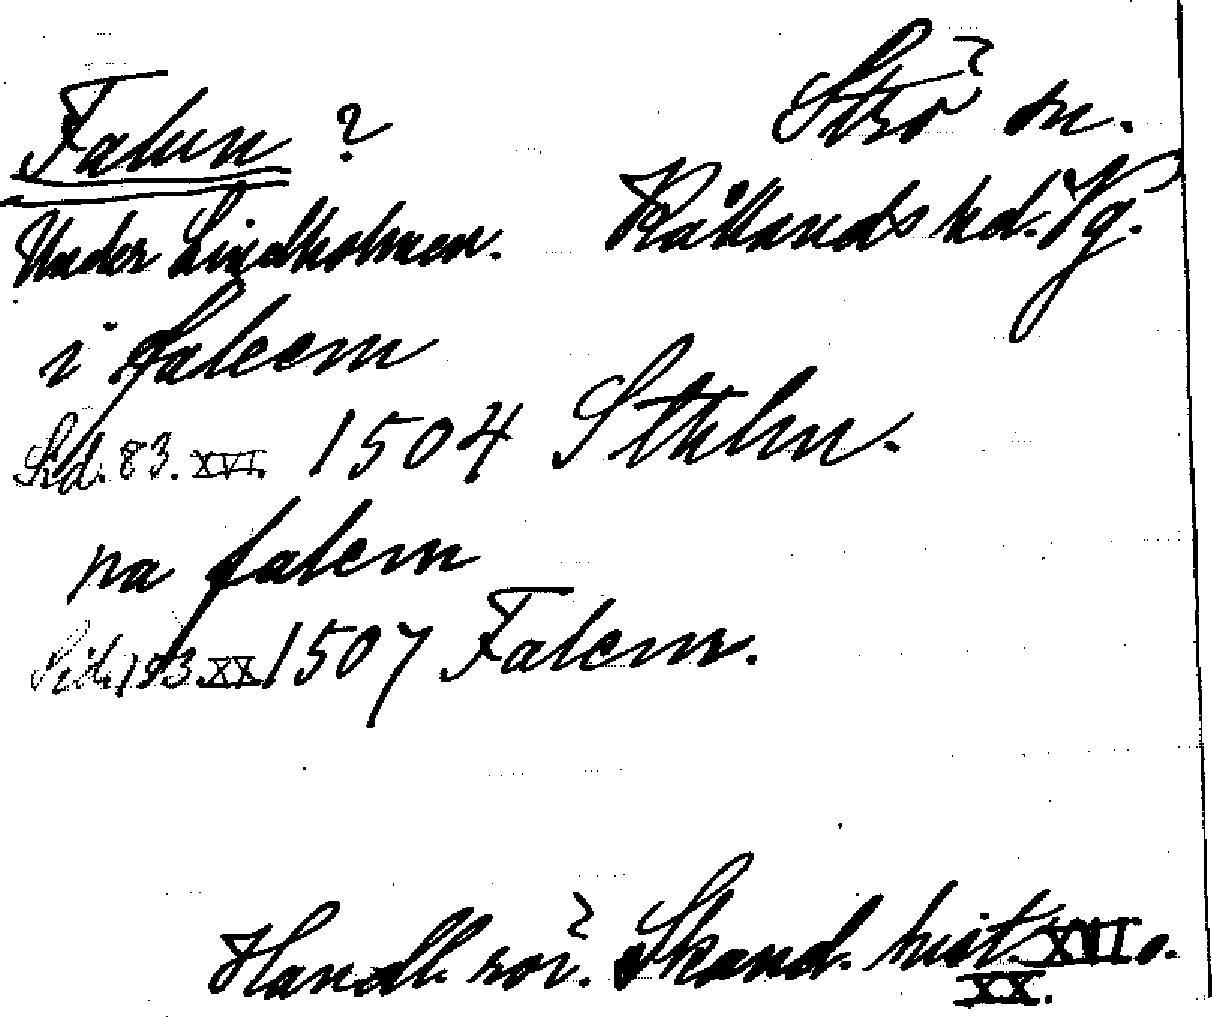 Falun ?
Strö sn.
Under Lindholmen.
Kållands hd. Vg.
i faleem
Sid. 83. XVI. 1504 Sthlm.
pa falem
Sid. 193. XX 1507 Falem.
Handl. rör. Skand. hist. XVI o.
XX.